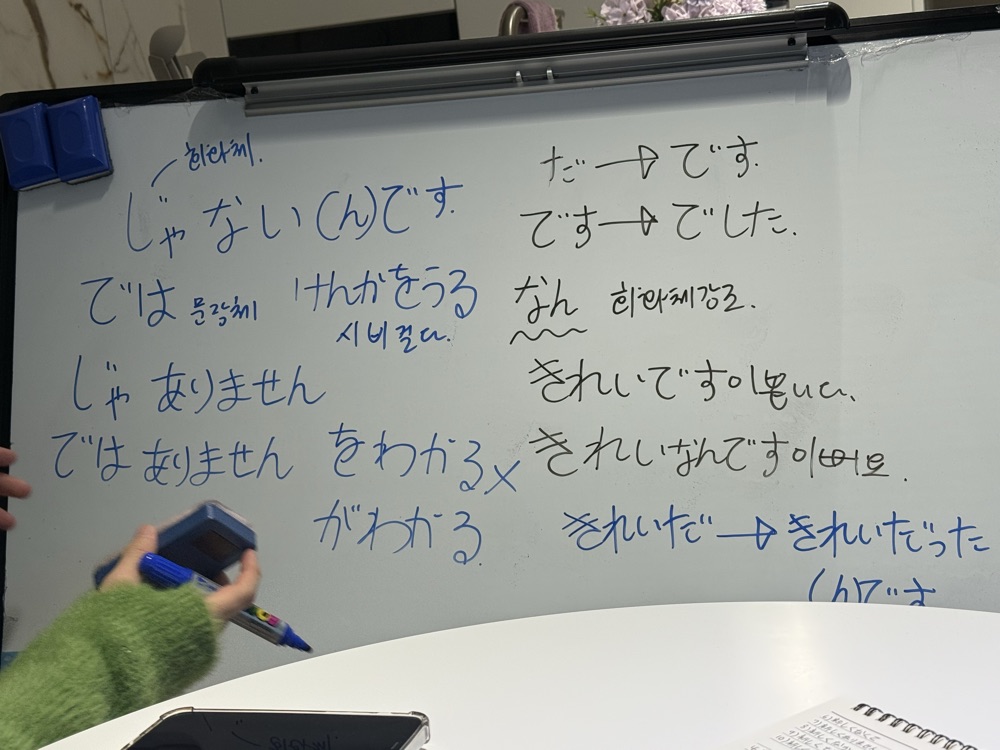 회화체.
じゃない(ん)です.
では 문장체 けんかをうる
시비 걸다.
じゃ ありません
では ありません をわかる×
がわかる.
だ→です.
です→でした.
なん 회화체강조.
きれいです이쁩니다.
きれいなんです이뻐요.
きれいだ→きれいだった
(ん)です